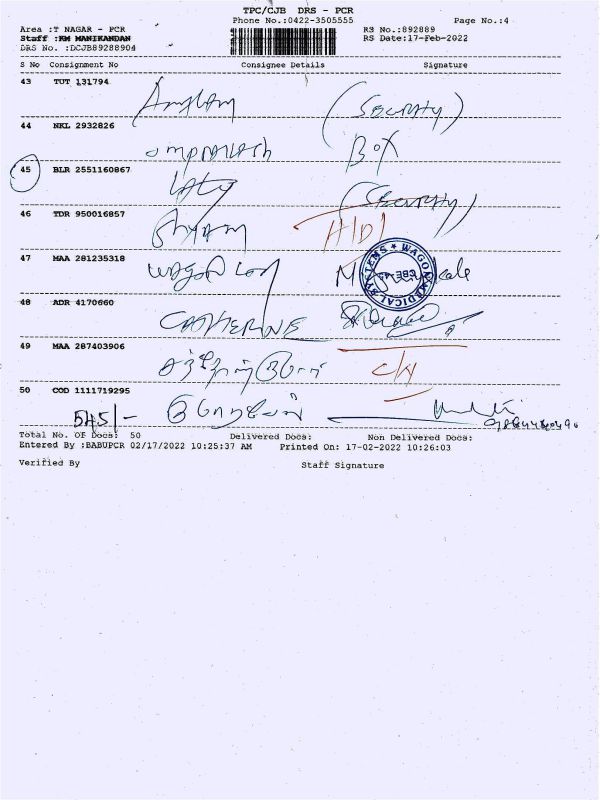 TPC/CJB DRS - PCR
Area :T NAGAR - PCR
Phone No.:0422-3505555
Page No.:4
Staff :RM MANIKANDAN
RS No.:892889
DRS No. :DCJB89288904
RS Date:17-Feb-2022
S No Consignment No Consignee Details Signature
43 TUT 131794
(Security)
44 NKL 2932826
omprakash BOX
45 BLR 2551160867
Laty (Security)
46 TDR 950016857
Shyam H/D1
47 MAA 281235318
WAGON MEDICAL SYSTEMS CBE
48 ADR 4170660
CATHERINE
49 MAA 287403906
50 COD 1111719295
545/-
Total No. OF Docs: 50 Delivered Docs: Non Delivered Docs:
Entered By :BABUPCR 02/17/2022 10:25:37 AM Printed On: 17-02-2022 10:26:03
Verified By Staff Signature